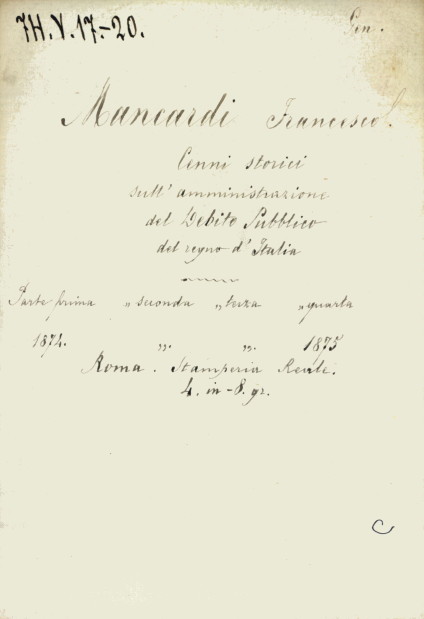 7H.V.17.-20.
Gen.
Mancardi Francesco.
Cenni storici
sull' amministrazione
del Debito Pubblico
del regno d' Italia
Parte prima „ seconda „ terza „ quarta
1874. „. „. 1875
Roma. Stamperia Reale.
4. in-8. gr.
C